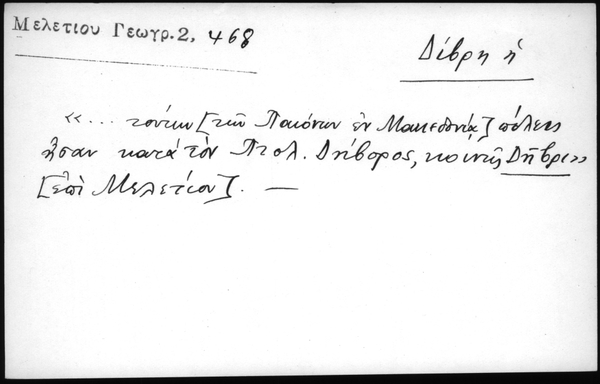 Μελετίου Γεωγρ. 2, 468
Δίβρη ἡ
«... τούτων [τῶν Παιόνων ἐν Μακεδονίᾳ] πόλεις
ἦσαν κατὰ τὸν Πτολ. Δήβορος, κοινῶς Δήβρι»
[ἐπὶ Μελετίου]. —